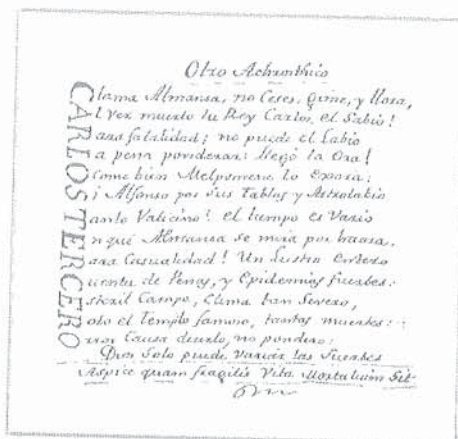 Otro Achrosthico
CARLOS TERCERO
lama Almansa, no Ceses, Gime, y llora,
l Ver muerto tu Rey Carlos, el Sabio!
ara fatalidad; no puede el Labio
a pena ponderar: llegó la Ora!
Come bien Melpomene lo
i Alfonso por sus Tablas y Astrolabio
anto Vaticino! el tiempo es Vario
n qué Almansa se mira por
ara Casualidad! Un Lustro entero
uenta de Penas, y Epidemias fuertes:
steril Campo, Clima tan Severo,
oto el Templo famoso, tantas muertes:
rror Causa decirlo, no pondero:
Dios Solo puede variar las Suertes
Aspice quam fragilis Vita Mortalium Sit